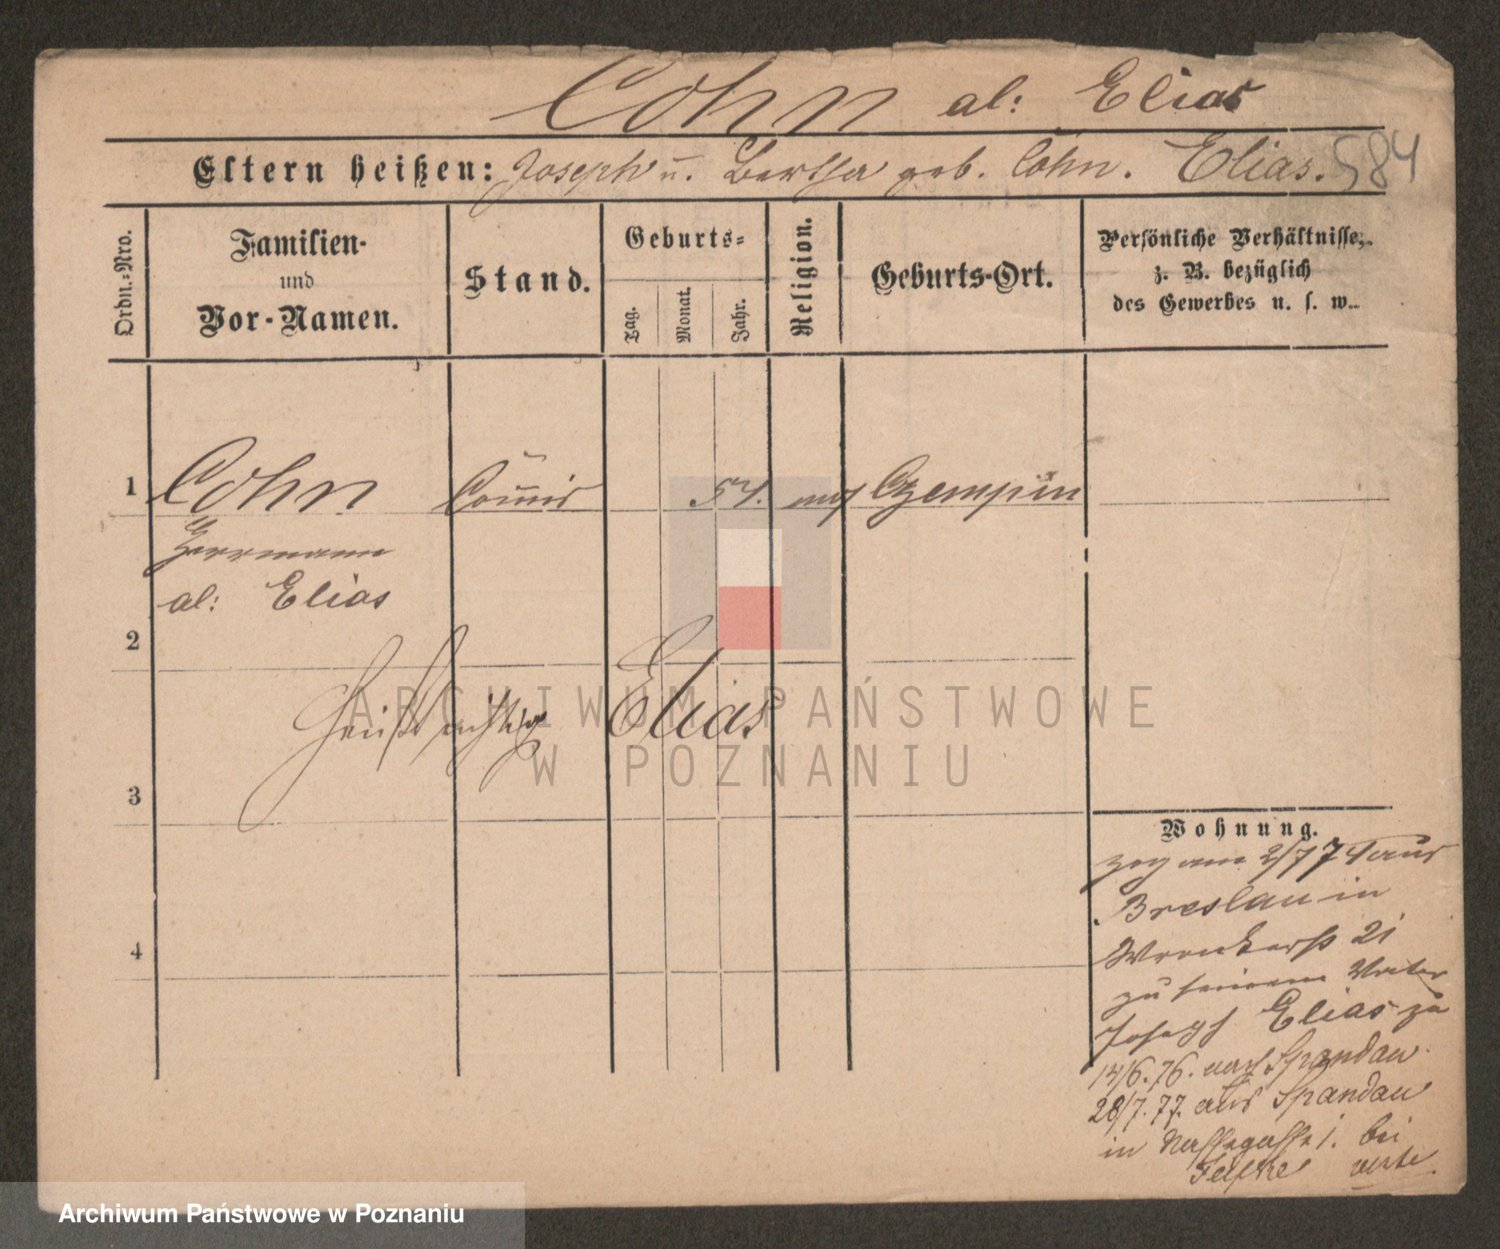 Cohn al: Elias
Eltern heißen: Joseph u. Bertha geb. Cohn. Elias. 584
Ordn.-Nro.
Familien-
und
Vor-Namen.
Stand.
Geburts-
Tag.
Monat.
Jahr.
Religion.
Geburts-Ort.
Persönliche Verhältnisse,
z. B. bezüglich
des Gewerbes u. s. w.
1 Cohn Commis 54. mos Czempin
Herrmann
al: Elias
2
heißt richtig Elias
3
4
Wohnung.
zog am 2/7 74 aus
Breslau in
Wronkerstr 21
zu seinem Vater
Joseph Elias zu
14/6.76. nach Spandau
28/7.77. aus Spandau
in Nassegasse 1. bei
verte
ARCHIWUM PAŃSTWOWE
W POZNANIU
Archiwum Państwowe w Poznaniu